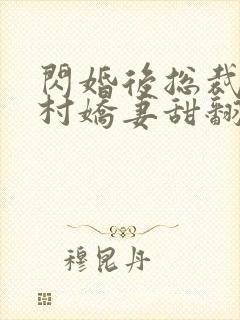 閃婚後總裁
村嬌妻甜翻
穆昆丹